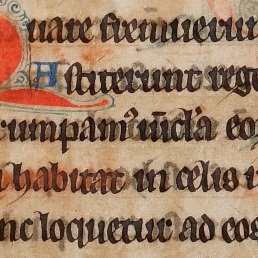 Quare fremuerun
Astiterunt rege
rumpam᷒ uincla eo
habitat in celis i
nc loquetur ad eos